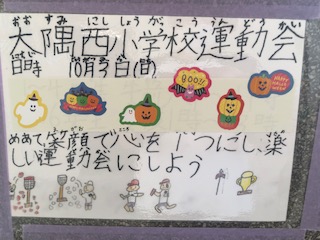 おお すみ にし しょう がっ こう うん どう かい
大隅西小学校運動会
にち じ
日時 10月3日(日)
BOO!!
めあて、笑顔で心を一つにし、楽
しい運動会にしよう